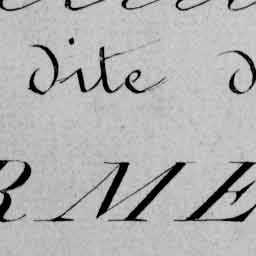 dite
RME